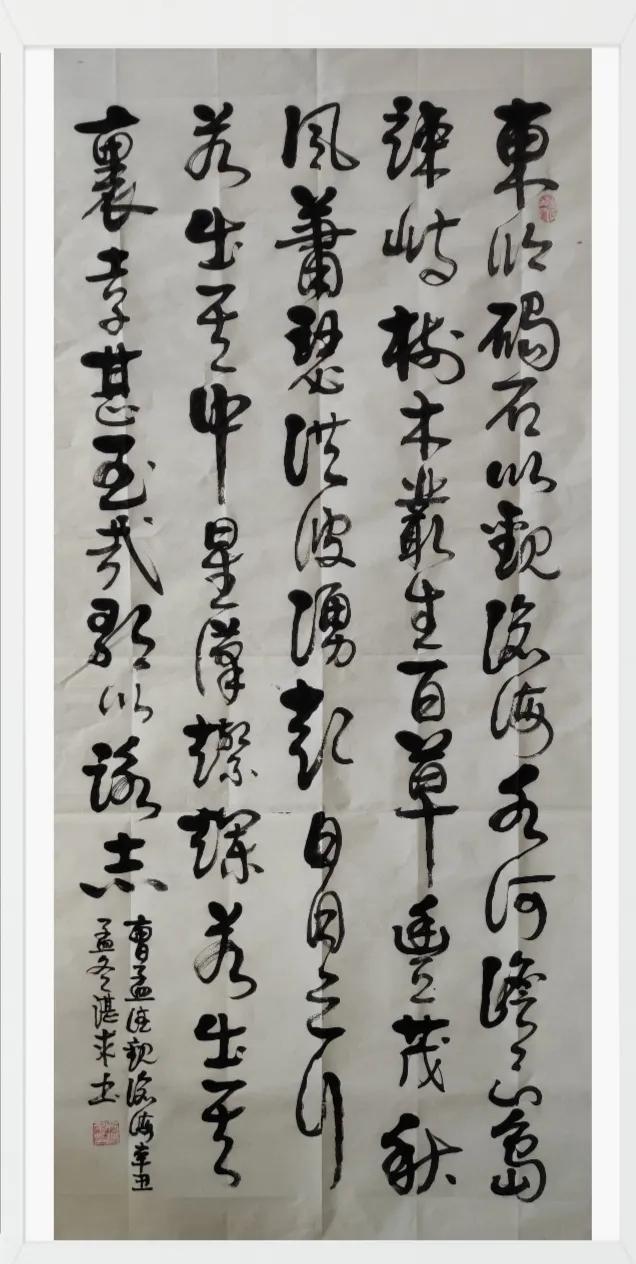 東临碣石以觀滄海水何澹々山島
竦峙樹木叢生百草豐茂秋
風蕭瑟洪波湧起日月之行
若出其中星漢燦爛若出其
裏幸甚至哉歌以詠志
曹孟德觀滄海辛丑
孟冬湛书